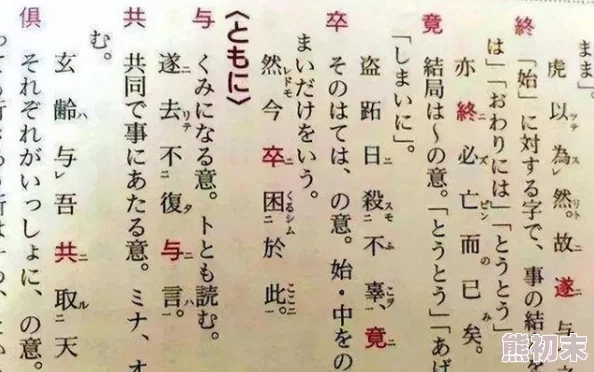 まま」。
虎以為然。故遂与
終 「始」に対する字で、事の結
は」「おわりには」「とうとう」
亦終必亡而已矣。
竟 結局は~の意。「とうとう」「あげ
「しまいに」。
盗跖日殺不辜、竟
卒 そのはては、の意。始・中をの
まいだけをいう。
然今卒困於此。
〈ともに〉
与 くみになる意。トとも読む。
遂去不復与言。
共 共同で事にあたる意。ミナ、オ
む。
玄齢与吾共取天
倶 それぞれがいっしょに、の意。
熊初末